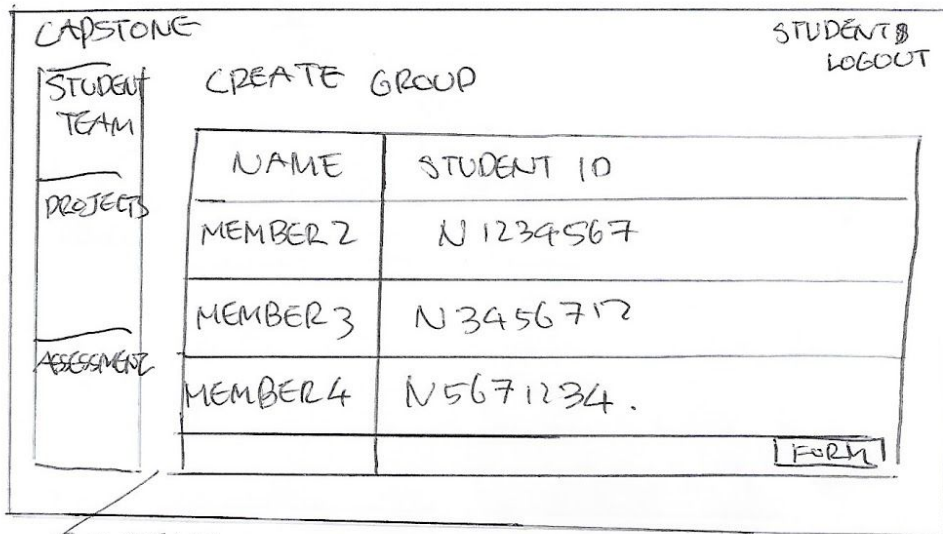 CAPSTONE
STUDENT
LOGOUT
STUDENT
TEAM
PROJECTS
ASSESSMENT
CREATE GROUP
NAME STUDENT ID
MEMBER 2 N1234567
MEMBER 3 N3456712
MEMBER 4 N5671234.
FORM